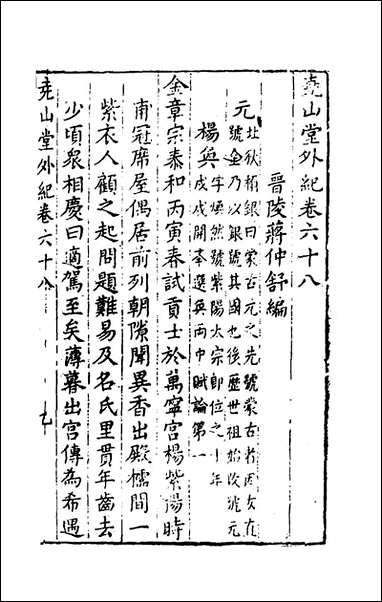 堯山堂外紀卷六十八
晉陵蔣仲舒編
元
北狄稱銀曰蒙古元之先號蒙古
號金乃以銀號其國也後歷世祖始改號元
楊奐
字煥然號紫陽太宗即位之十年
戊戌開舉選奐兩中賦論第一
金章宗泰和丙寅春試貢士於萬寧宮楊紫陽時
甫冠席屋偶居前列朝隙聞異香出殿櫺間一
紫衣人顧之起問題難易及名氏里貫年齒去
少頃衆相慶曰適駕至矣薄暮出宮傳為希遇
堯山堂外紀卷六十八